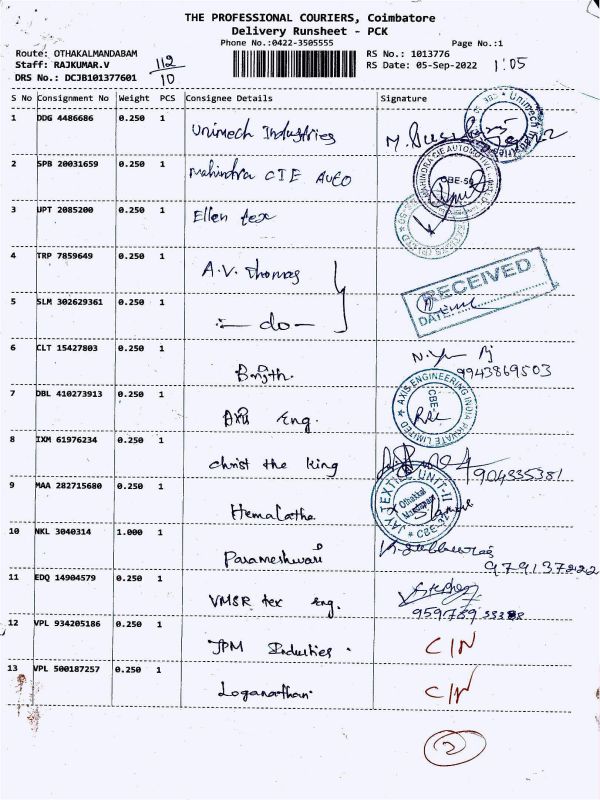 THE PROFESSIONAL COURIERS, Coimbatore
Delivery Runsheet - PCK
Phone No.:0422-3505555
Page No.:1
Route: OTHAKALMANDABAM
RS No.: 1013776
Staff: RAJKUMAR.V
112/10
RS Date: 05-Sep-2022
1:05
DRS No.: DCJB101377601
S No Consignment No Weight PCS Consignee Details Signature
1 DDG 4486686 0.250 1 Unimech Industries
2 SPB 20031659 0.250 1 Mahindra CIE Auto
MAHINDRA CIE AUTOMOTIVE
CBE-50
3 UPT 2085200 0.250 1 Ellen tex
4 TRP 7859649 0.250 1 A.V. Thomas
RECEIVED
DATE:
5 SLM 302629361 0.250 1 :- do -
6 CLT 15427803 0.250 1
9943869503
7 DBL 410273913 0.250 1 Axis Eng.
AXIS ENGINEERING INDIA PRIVATE LIMITED
CBE
8 IXM 61976234 0.250 1 Christ the King
904335381
9 MAA 282715680 0.250 1 Hemalatha
JAY TEXTILE UNIT-II
Othakkal Mandapam
CBE-32
10 NKL 3040314 1.000 1 Parameshwari
979137222
11 EDQ 14904579 0.250 1 VMSR tex Eng.
12 VPL 934205186 0.250 1 JPM Industries. C/N
13 VPL 500187257 0.250 1 Loganathan. C/N
2